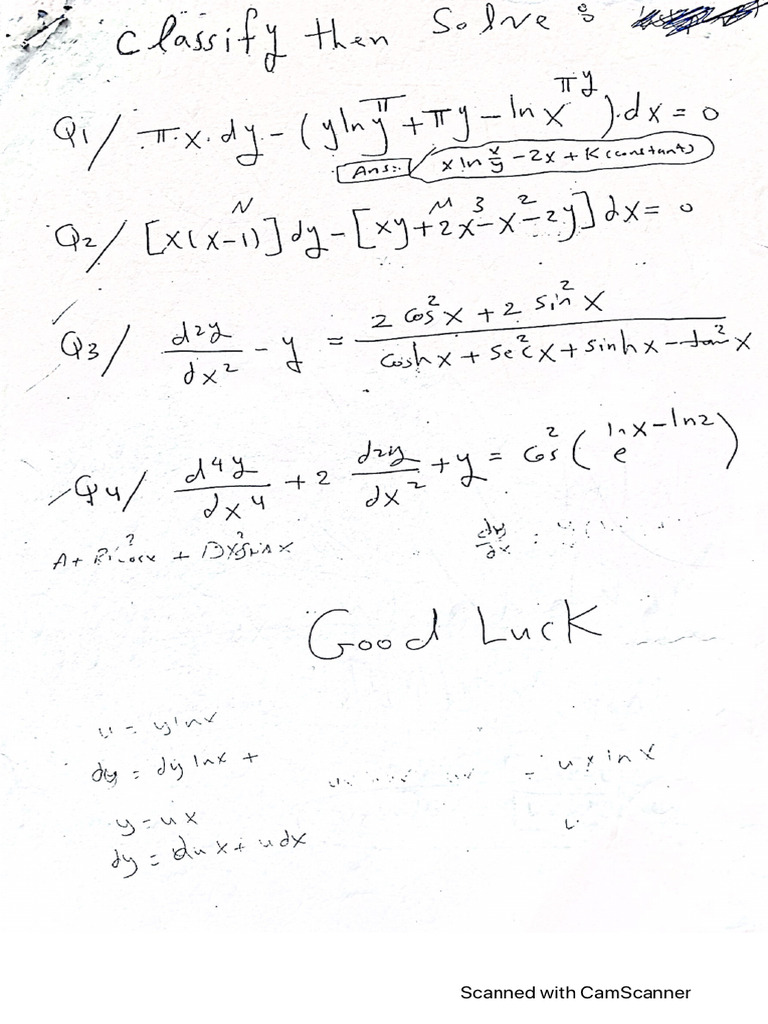 Classify then Solve :
Q1/ π.x.dy - (y ln y^π + πy - ln x^πy).dx = 0
Ans:- x ln x/y - 2x + K (constant)
Q2/ [x(x-1)] dy - [xy + 2x^3 - x^2 - 2y] dx = 0
N M
Q3/ d2y/dx^2 - y = (2 cos^2 x + 2 sin^2 x)/(cosh x + sec^2 x + sinh x - tan^2 x)
Q4/ d^4y/dx^4 + 2 d2y/dx^2 + y = cos^2 (e^(ln x - ln 2))
dy/dx :
Good Luck
u = y ln x
dy = dy ln x +
= u x ln x
y = ux
dy = du x + u dx
Scanned with CamScanner